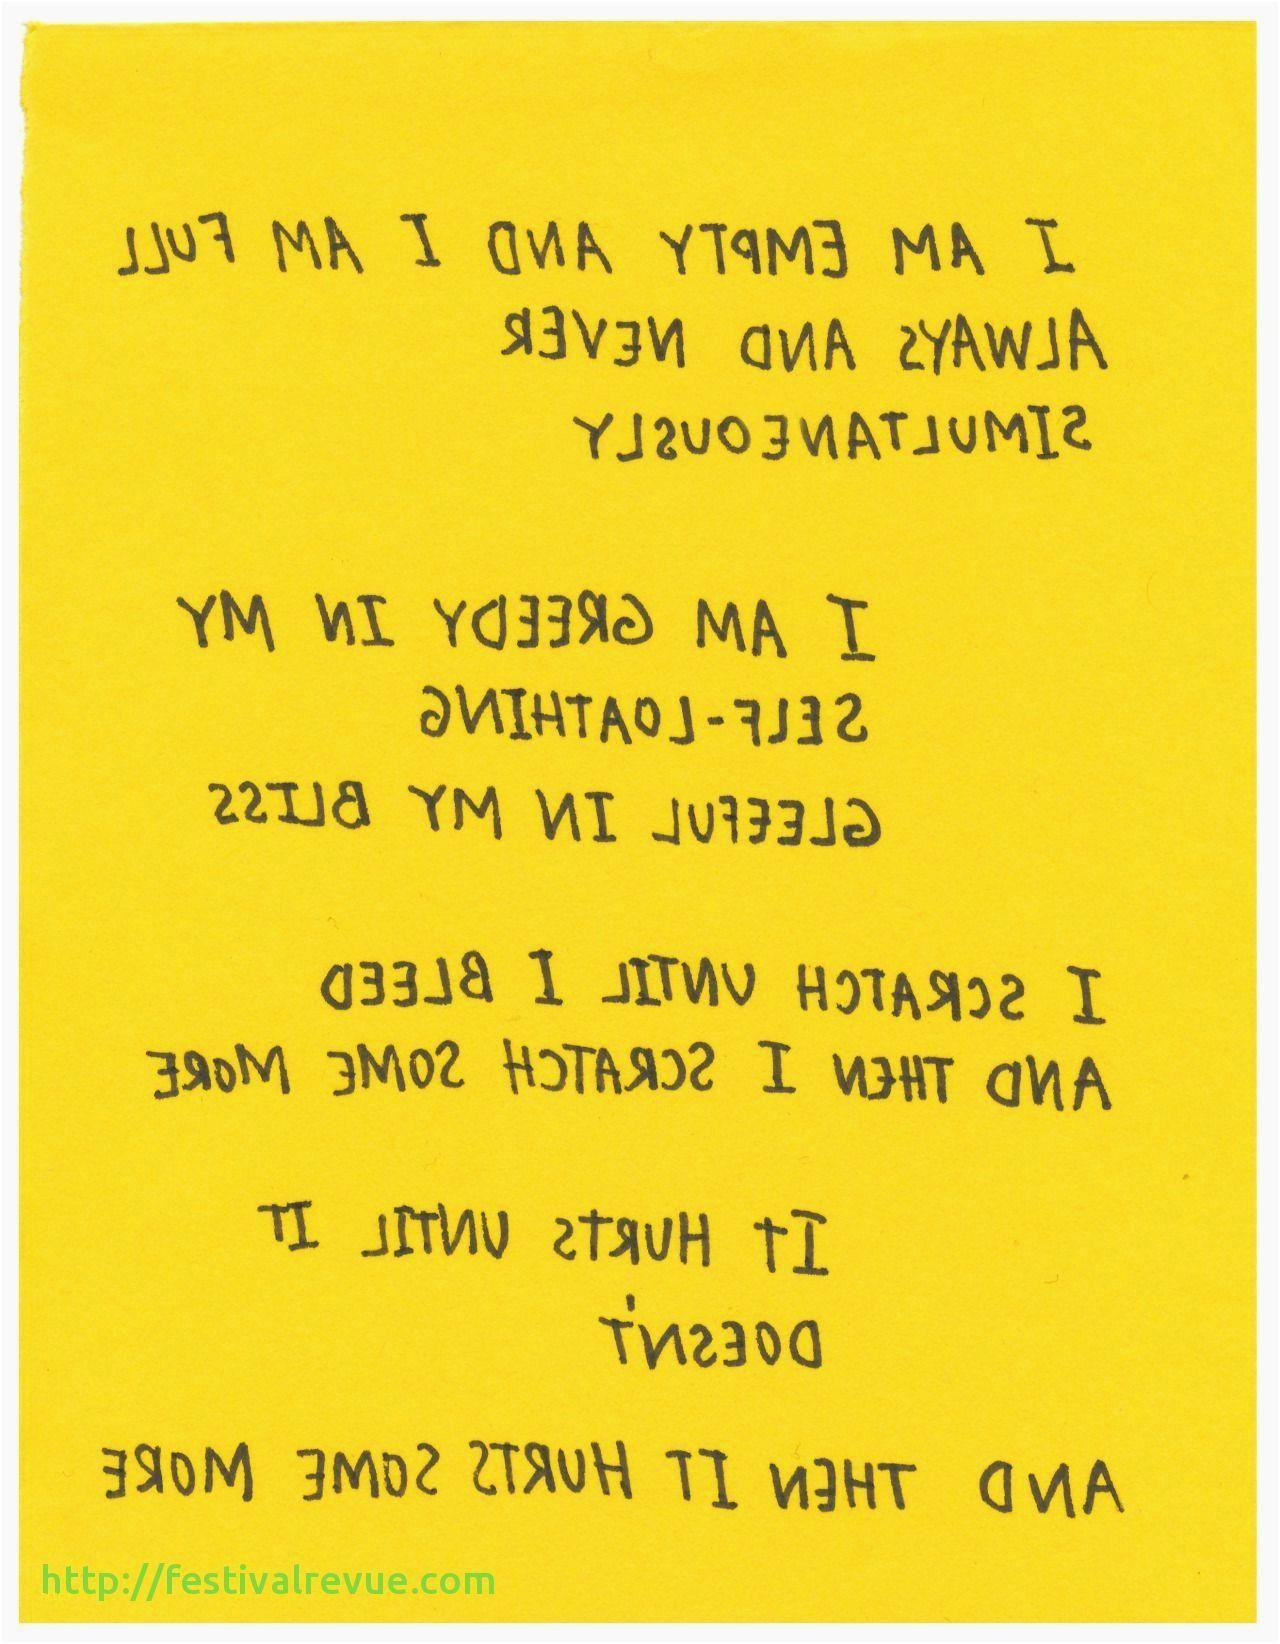 I AM EMPTY AND I AM FULL
ALWAYS AND NEVER
SIMULTANEOUSLY
I AM GREEDY IN MY
SELF-LOATHING
GLEEFUL IN MY BLISS
I SCRATCH UNTIL I BLEED
AND THEN I SCRATCH SOME MORE
It HURTS UNTIL IT
DOESN'T
AND THEN IT HURTS SOME MORE
http://festivalrevue.com